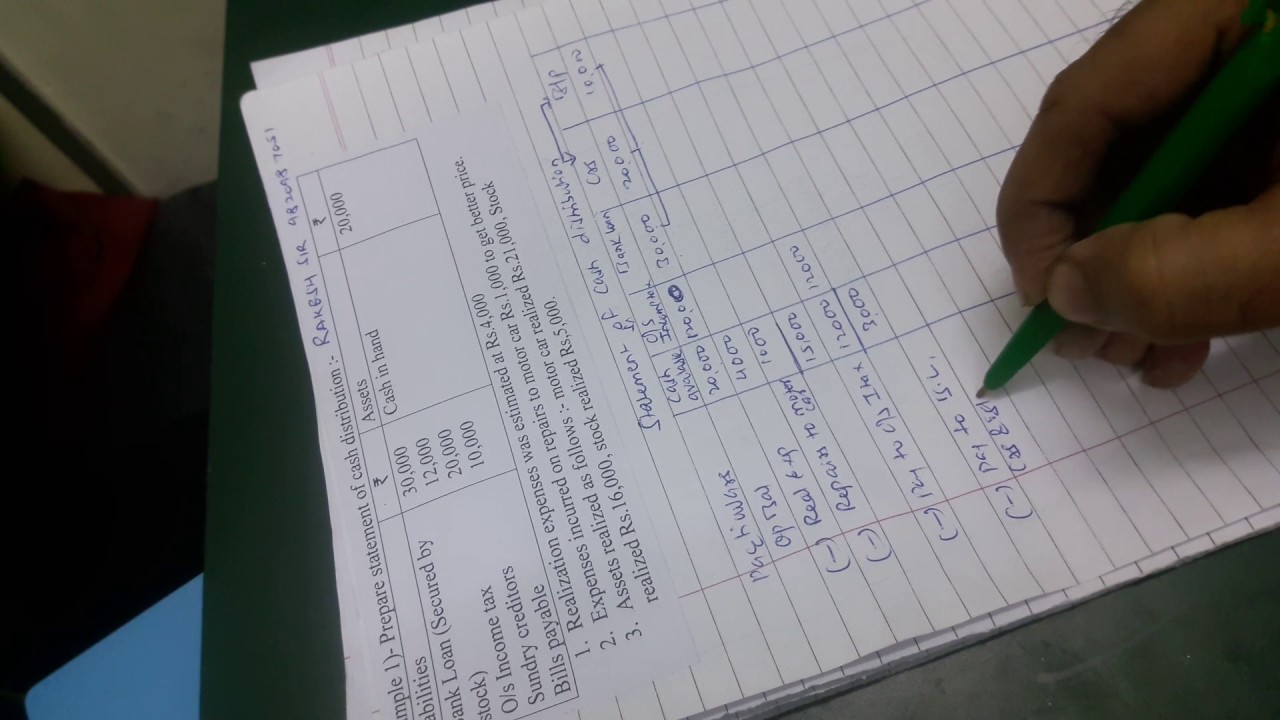 RAKESH SIR 982098 7051
mple 1)- Prepare statement of cash distribution :-
abilities ₹ Assets ₹
ank Loan (Secured by 30,000 Cash in hand 20,000
stock)
O/s Income tax 12,000
Sundry creditors 20,000
Bills payable 10,000
1. Realization expenses was estimated at Rs.4,000
2. Expenses incurred on repairs to motor car Rs.1,000 to get better price.
3. Assets realized as follows :- motor car realized Rs.21,000, Stock
realized Rs.16,000, stock realized Rs.5,000.
Statement of Cash distribution
Cash available O/S Bank Loan Crs B/P
20,000 12000 30000 20000 10,000
Op Bal
(-) Real Exp 4000
(-) Repairs to motor car 1000
15,000 12000
(-) Pay to O/s I tax 12000
3,000
(-) Pay to B.L.